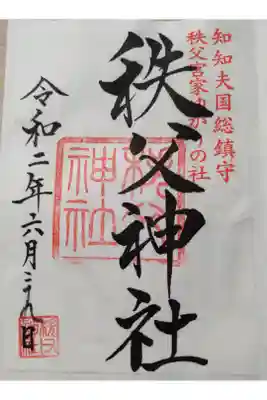 知知夫国総鎮守
秩父宮家ゆかりの社
秩父神社
秩父神社
令和二年六月三十八日